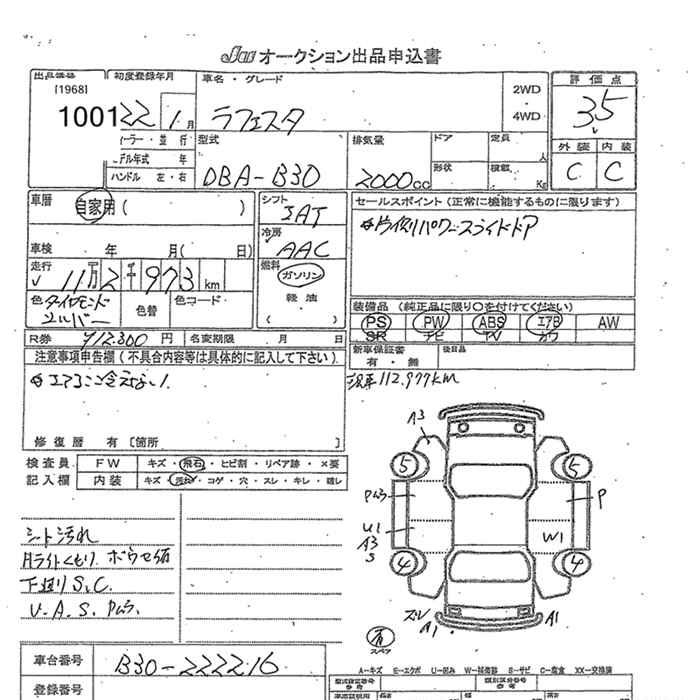 JAA オークション出品申込書
出品番号
[1968]
1001
初度登録年月
22年1月
車名・グレード
ラフェスタ
2WD
・
4WD
評価点
3.5
外装 内装
C C
カラー・並行
モデル年式 年
ハンドル 左・右
型式
DBA-B30
排気量
2000cc
ドア
形状
定員
人
積載
Kg
車歴
自家用( )
シフト
IAT
冷房
AAC
車検 年 月( 日)
走行
√ 11万2千973km
燃料
ガソリン
軽油
( )
色 ダイヤモンドシルバー
色替
色コード
セールスポイント(正常に機能するものに限ります)
片側パワースライドドア
装備品(純正品に限り○を付けてください)
PS PW ABS エアB AW
SR ナビ TV カワ
R券 ¥12,300円
名変期限 月 日
新車保証書
有・無
後日品
注意事項申告欄(不具合内容等は具体的に記入して下さい)
現車112.977km
修復歴 有〔箇所 〕
検査員
記入欄
FW キズ・飛石・ヒビ割・リペア跡・×要
内装 キズ・汚れ・コゲ・穴・スレ・キレ・破レ
シート汚れ
下廻りS.C.
U.A.S.Pムラ.
A3
5
5
Pムラ
P
U1
A3
S
W1
4
4
スレ
A1
A1
有
スペア
A-キズ E-エクボ U-凹み W-補修跡 S-サビ C-腐食 XX-交換済
車台番号
B30-222216
登録番号